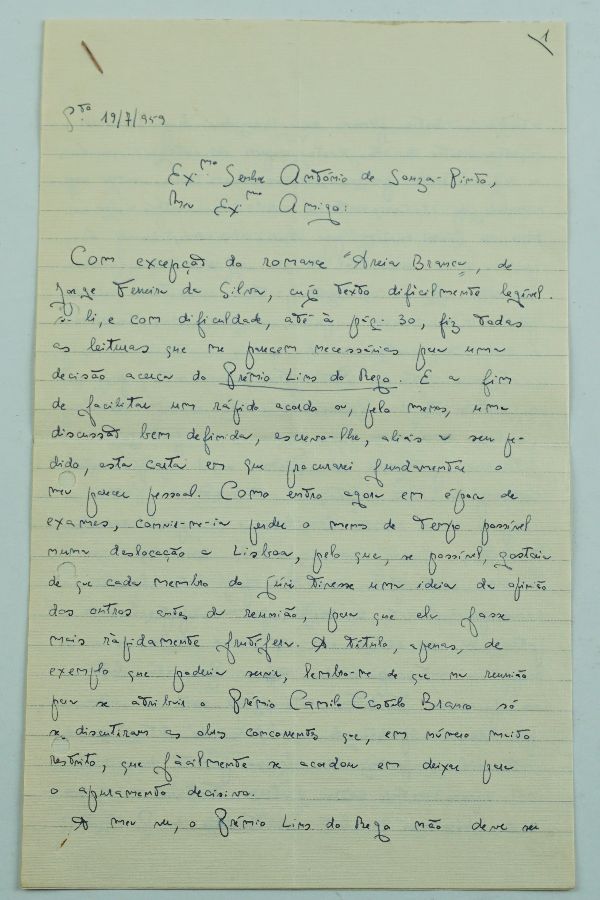 1
P.to 19/7/959
Ex.mo Senhor António de Souza-Pinto,
Meu Ex.mo Amigo:
Com excepção do romance "Areia Branca", de
Jorge Ferreira da Silva, cujo texto dificilmente legível
só li, e com dificuldade, até à pág. 30, fiz todas
as leituras que me parecem necessárias para uma
decisão acerca do Prémio Lins do Rego. E a fim
de facilitar um rápido acordo ou, pelo menos, uma
discussão bem definida, escrevo-lhe, aliás a seu pe-
dido, esta carta em que procurarei fundamentar o
meu parecer pessoal. Como entro agora em época de
exames, convir-me-ia perder o menos de tempo possível
numa deslocação a Lisboa, pelo que, se possível, gostaria
de que cada membro do júri tivesse uma ideia da opinião
dos outros antes da reunião, para que ela fosse
mais ràpidamente frutífera. A título, apenas, de
exemplo que poderia servir, lembro-me de que na reunião
para se atribuir o Prémio Camilo Castelo Branco só
se discutiram as obras concorrentes que, em número muito
restrito, que fàcilmente se acordou em deixar para
o apuramento decisivo.
A meu ver, o Prémio Lins do Rego não deve ser